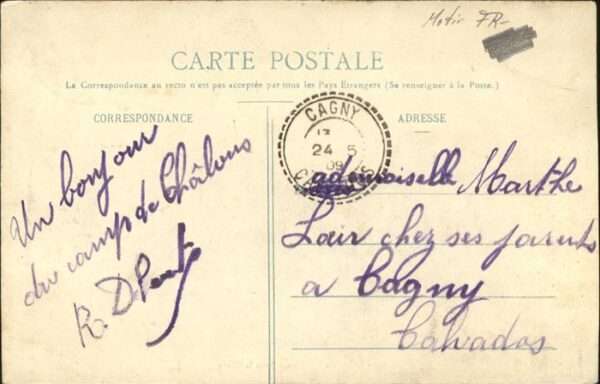 Motiv FR-
CARTE POSTALE
La Correspondance au recto n'est pas acceptée par tous les Pays Etrangers (Se renseigner à la Poste.)
CORRESPONDANCE
ADRESSE
Un bonjour
du camp de Châlons
R.
CAGNY
24 5
09
CALVADOS
Mademoiselle Marthe
Lair chez ses parents
à Cagny
Calvados